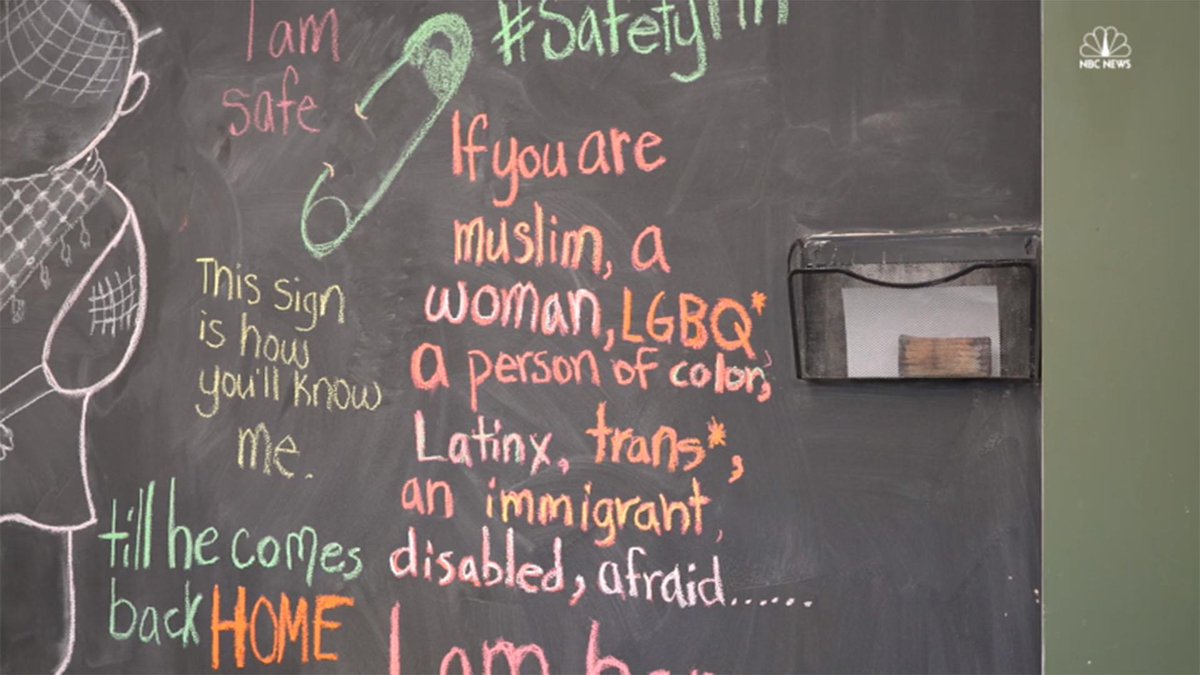 I am
safe
#SafetyPin
If you are
muslim, a
woman, LGBQ*
a person of color,
Latinx, trans*,
an immigrant,
disabled, afraid......
I am
This sign
is how
you'll know
me.
till he comes
back HOME
NBC NEWS